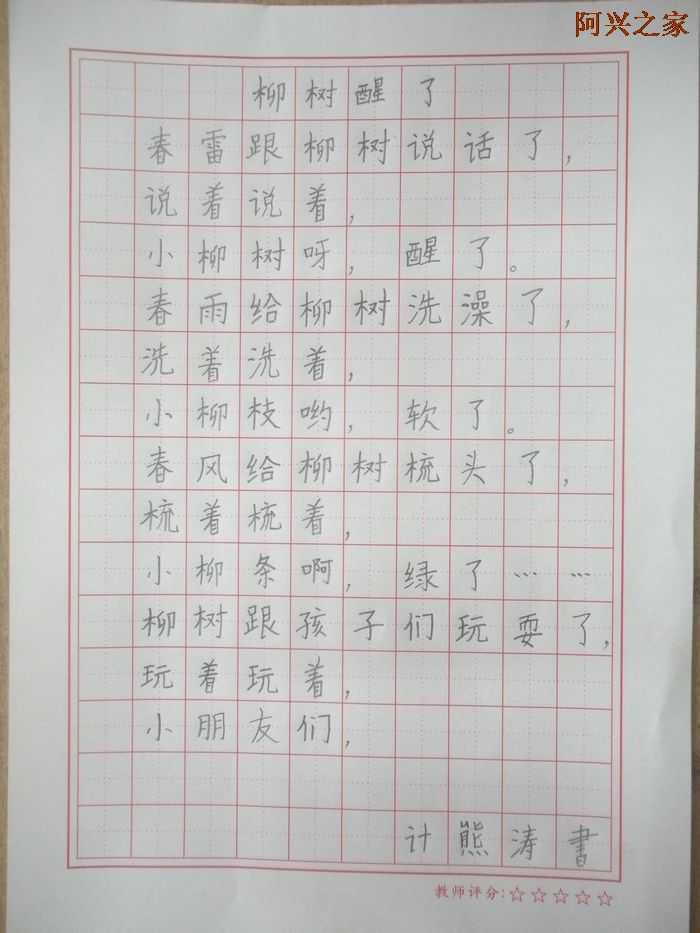 阿兴之家
柳树醒了
春雷跟柳树说话了，
说着说着，
小柳树呀，醒了。
春雨给柳树洗澡了，
洗着洗着，
小柳枝哟，软了。
春风给柳树梳头了，
梳着梳着，
小柳条啊，绿了……
柳树跟孩子们玩耍了，
玩着玩着，
小朋友们，
计熊涛書
教师评分：☆☆☆☆☆